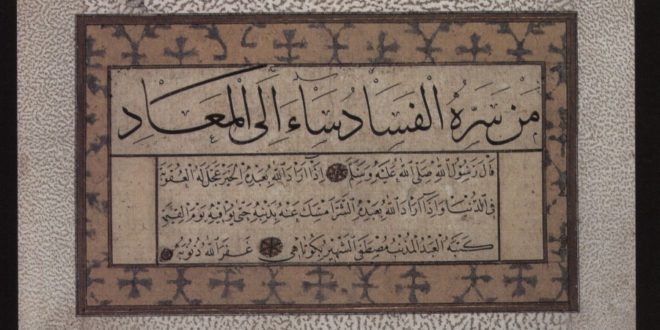 مَنْ سَرَّهُ الْفَسَادُ سَاءَ اِلَى الْمَعَادِ
قَالَ رَسُولُ اللهِ صَلَّى اللهُ عَلَيْهِ وَسَلَّمَ اِذَا اَرَادَ اللهُ بِعَبْدِهِ الْخَيْرَ عَجَّلَ لَهُ الْعُقُوبَةَ
فِى الدُّنْيَا وَاِذَا اَرَادَ اللهُ بِعَبْدِهِ الشَّرَّ اَمْسَكَ عَنْهُ بِذَنْبِهِ حَتَّى يُوَافِيَهُ يَوْمَ الْقِيٰمَةِ
كَتَبَهُ الْعَبْدُ الْمُذْنِبُ مُصْطَفَى الشَّهِيرُ بِكُوتَاهِى غَفَرَ اللهُ ذُنُوبَهُ